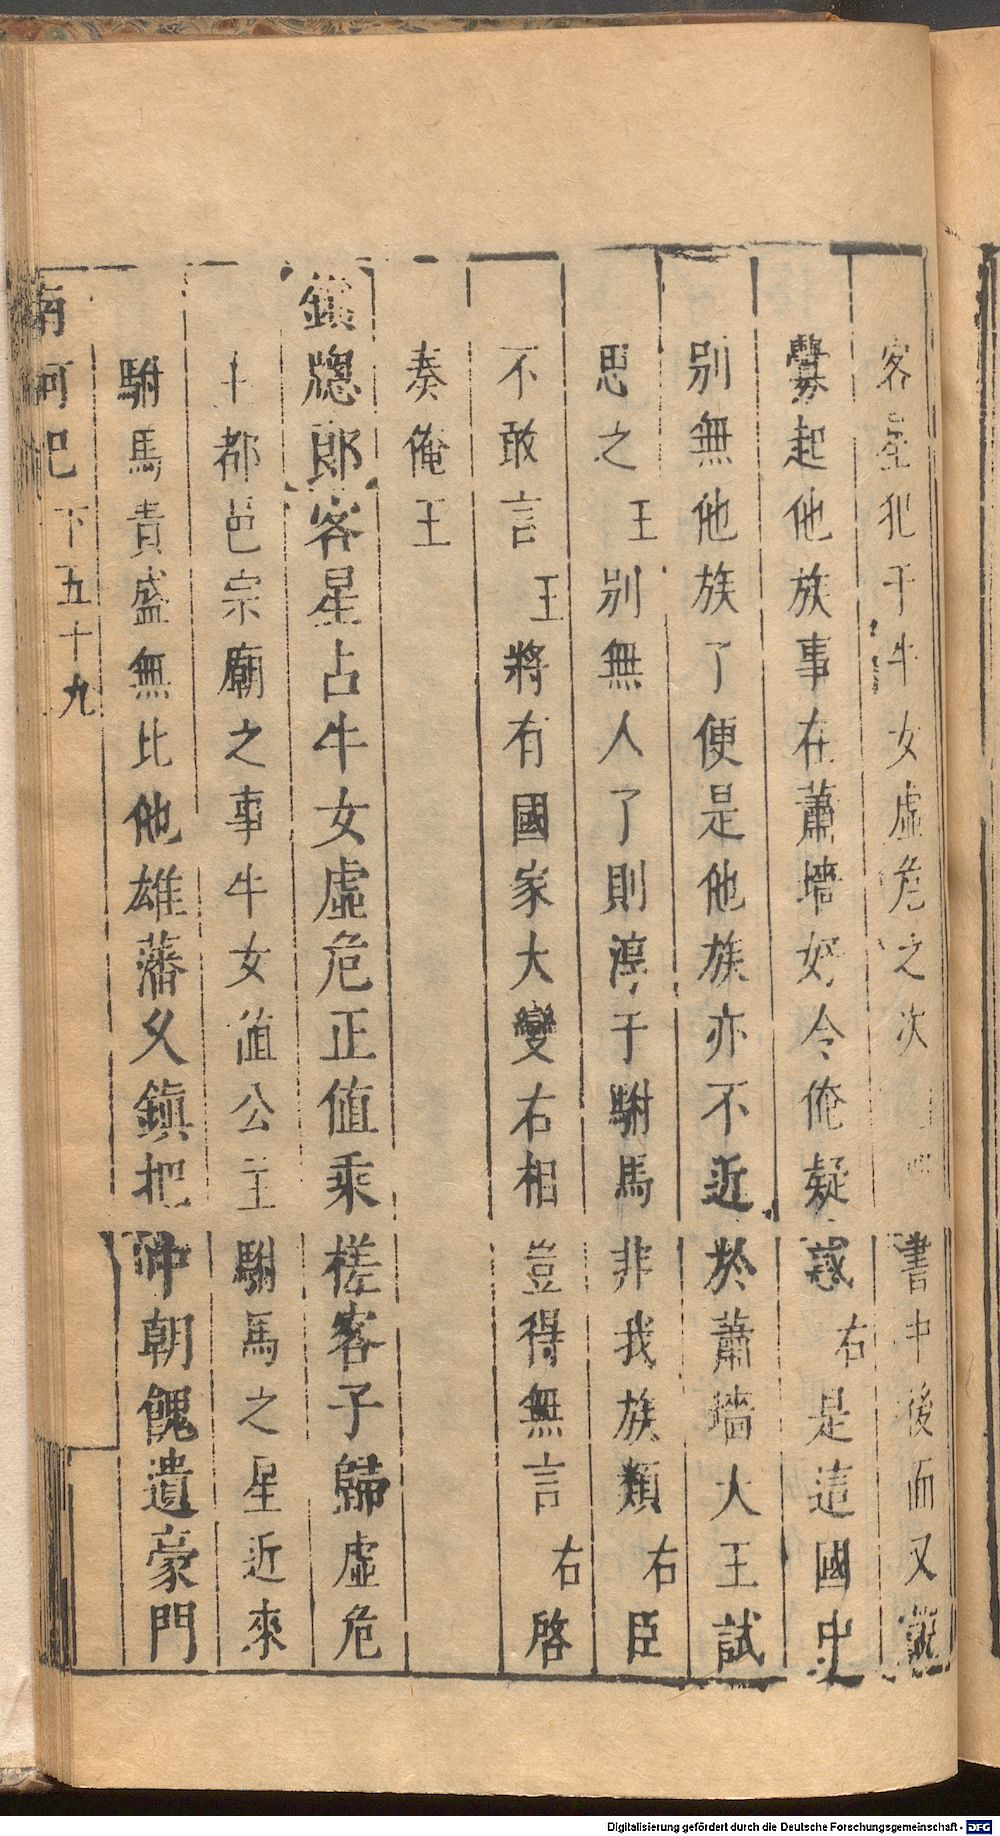 客星犯于牛女虛危之次書中後面又說
釁起他族事在蕭墻好令俺疑惑右是這國中
别無他族了便是他族亦不近於蕭墻大王試
思之王别無人了則淳于駙馬非我族類右臣
不敢言王將有國家大變右相豈得無言右啓
奏俺王
鎖牕郎客星占牛女虛危正值乘槎客子歸虛危
主都邑宗廟之事牛女值公主駙馬之星近來
駙馬貴盛無比他雄藩久鎮把中朝餽遺豪門
南柯記 下 五十九
Digitalisierung gefördert durch die Deutsche Forschungsgemeinschaft - DFG